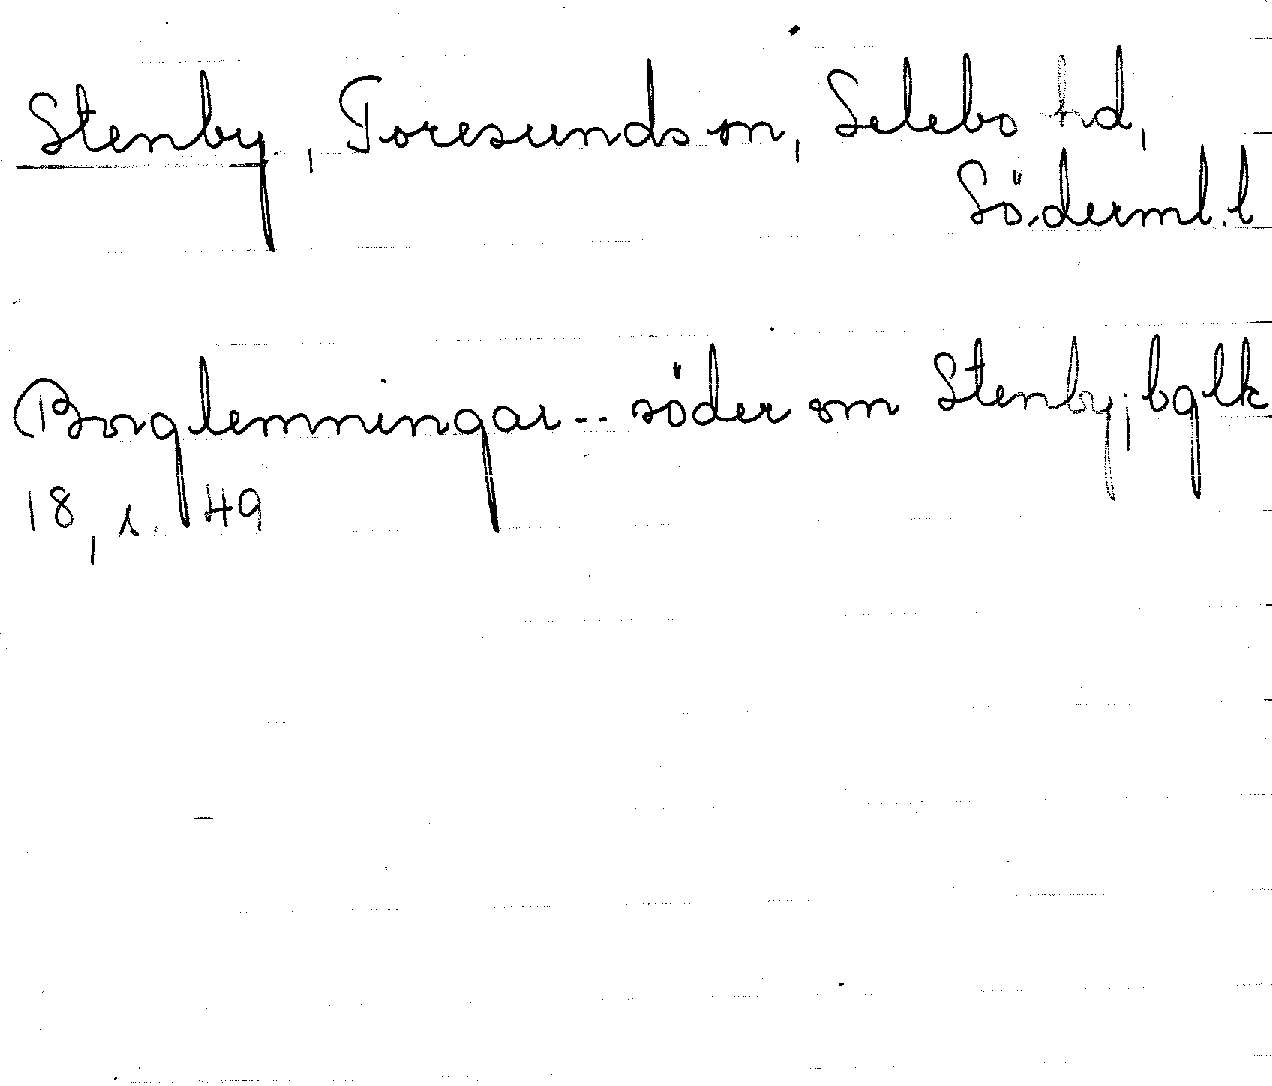 Stenby, Toresunds sn, Selebo hd,
Söderml. l
Borglemningar -- söder om Stenby; bglk
18, s. 49